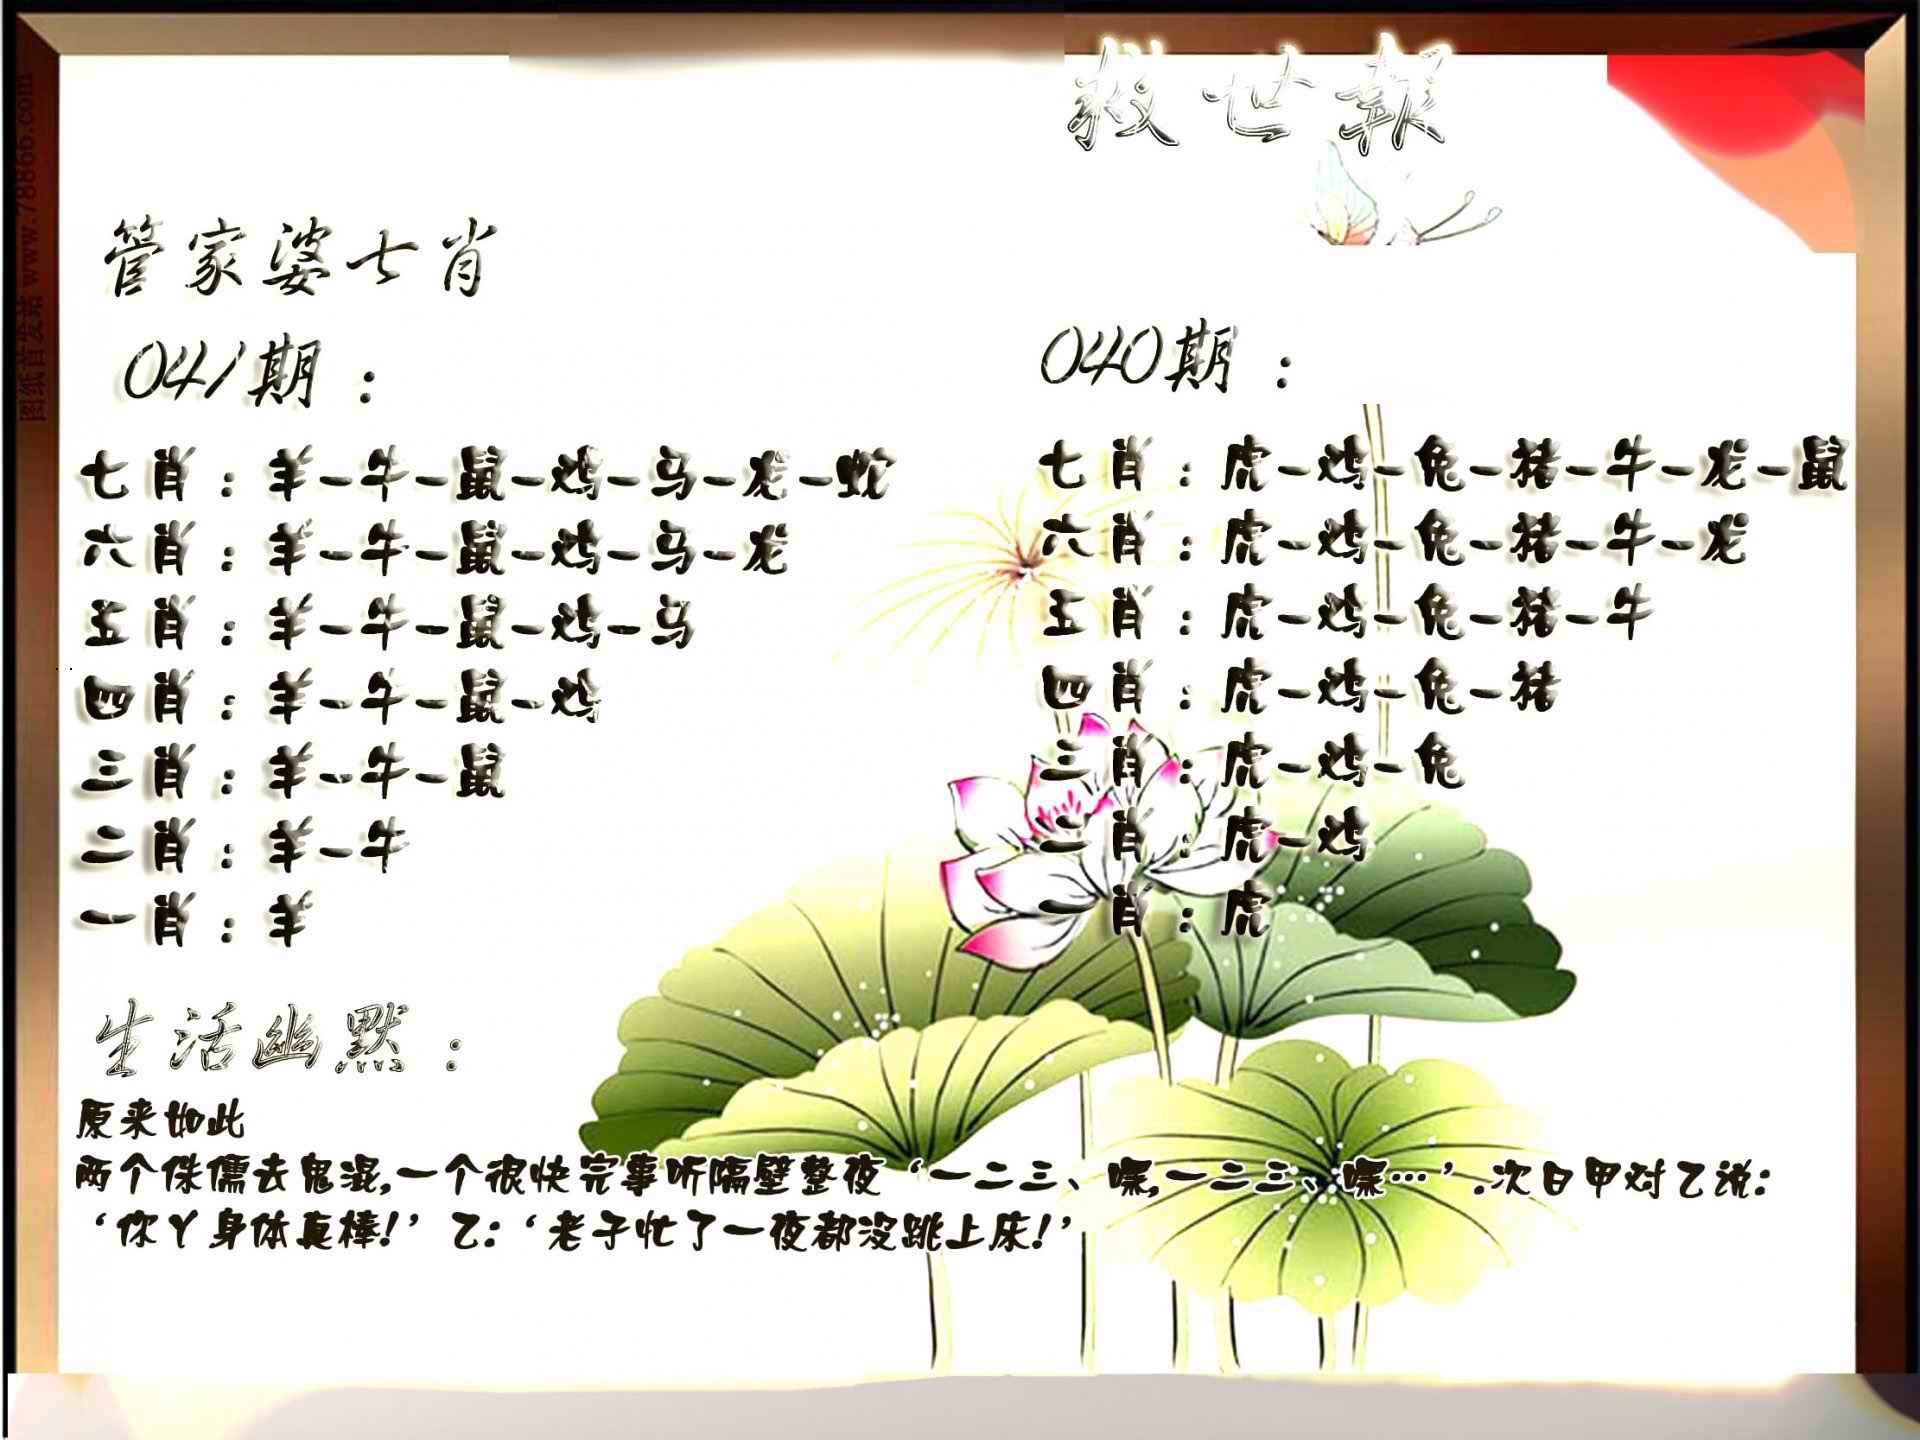 救世報
管家婆七肖
041期：
七肖：羊-牛-鼠-鸡-马-龙-蛇
六肖：羊-牛-鼠-鸡-马-龙
五肖：羊-牛-鼠-鸡-马
四肖：羊-牛-鼠-鸡
三肖：羊-牛-鼠
二肖：羊-牛
一肖：羊
040期：
七肖：虎-鸡-兔-猪-牛-龙-鼠
六肖：虎-鸡-兔-猪-牛-龙
五肖：虎-鸡-兔-猪-牛
四肖：虎-鸡-兔-猪
三肖：虎-鸡-兔
二肖：虎-鸡
一肖：虎
生活幽默：
原来如此
两个侏儒去鬼混,一个很快完事听隔壁整夜‘一二三、嘿,一二三、嘿…’.次日甲对乙说:
‘你丫身体真棒!’乙:‘老子忙了一夜都没跳上床!’
图纸首发站 www.78866.com